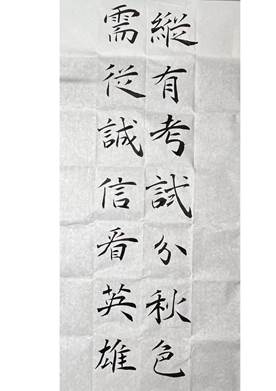 縱有考試分秋色
需從誠信看英雄